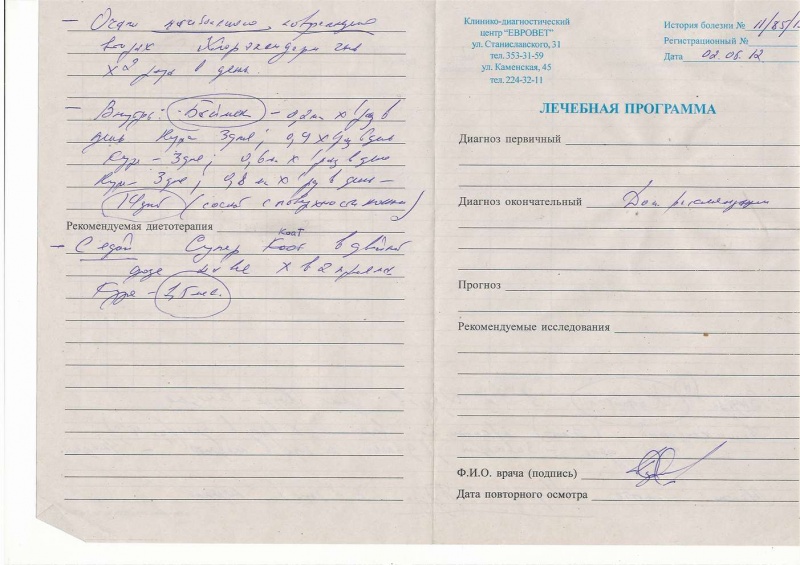 — Очаги наибольшего повреждения
Хлоргексидин
х 2 раза в день.
— Внутрь: - Баймек - 0,2 мл х 1 раз в
день Курс 3 дня; 0,4 х 1 раз в день
Курс - 3 дня; 0,6 мл х 1 раз в день
Курс 3 дня; 0,8 мл х 1 раз в день -
14 дней (соскоб с поверхности кожи)
Рекомендуемая диетотерапия
коат
— С едой Супер Коат в двойной
дозе х в 2 приема
Курс - 1,5 мес.
Клинико-диагностический
центр "ЕВРОВЕТ"
ул. Станиславского, 31
тел. 353-31-59
ул. Каменская, 45
тел. 224-32-11
История болезни № 11/85/1
Регистрационный №
Дата 02.05.12
ЛЕЧЕБНАЯ ПРОГРАММА
Диагноз первичный
Диагноз окончательный Доп рекомендации
Прогноз
Рекомендуемые исследования
Ф.И.О. врача (подпись)
Дата повторного осмотра